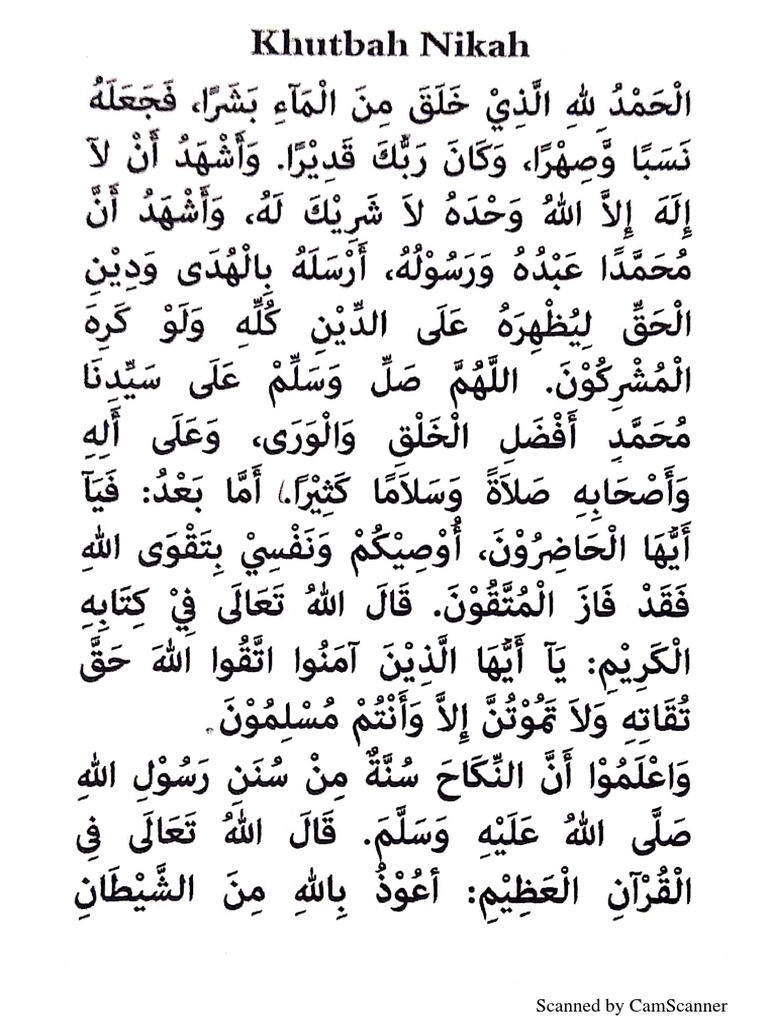 Khutbah Nikah
الْحَمْدُ لِلهِ الَّذِيْ خَلَقَ مِنَ الْمَآءِ بَشَرًا، فَجَعَلَهُ
نَسَبًا وَّصِهْرًا، وَكَانَ رَبُّكَ قَدِيْرًا. وَأَشْهَدُ أَنْ لآ
إِلَهَ إِلاَّ اللهُ وَحْدَهُ لاَ شَرِيْكَ لَهُ، وَأَشْهَدُ أَنَّ
مُحَمَّدًا عَبْدُهُ وَرَسُوْلُهُ، أَرْسَلَهُ بِالْهُدَى وَدِيْنِ
الْحَقِّ لِيُظْهِرَهُ عَلَى الدِّيْنِ كُلِّهِ وَلَوْ كَرِهَ
الْمُشْرِكُوْنَ. اللَّهُمَّ صَلِّ وَسَلِّمْ عَلَى سَيِّدِنَا
مُحَمَّدٍ أَفْضَلِ الْخَلْقِ وَالْوَرَى، وَعَلَى أَلِهِ
وَأَصْحَابِهِ صَلاَةً وَسَلاَمًا كَثِيْرًا.) أَمَّا بَعْدُ: فَيَآ
أَيُّهَا الْحَاضِرُوْنَ، أُوْصِيْكُمْ وَنَفْسِيْ بِتَقْوَى اللهِ
فَقَدْ فَازَ الْمُتَّقُوْنَ. قَالَ اللهُ تَعَالَى فِيْ كِتَابِهِ
الْكَرِيْمِ: يَآ أَيُّهَا الَّذِيْنَ آمَنُوا اتَّقُوا اللهَ حَقَّ
تُقَاتِهِ وَلاَ تَمُوْتُنَّ إِلاَّ وَأَنْتُمْ مُسْلِمُوْنَ.
وَاعْلَمُوْا أَنَّ النِّكَاحَ سُنَّةٌ مِنْ سُنَنِ رَسُوْلِ اللهِ
صَلَّى اللهُ عَلَيْهِ وَسَلَّمَ. قَالَ اللهُ تَعَالَى فِى
الْقُرْآنِ الْعَظِيْمِ: أعُوْذُ بِاللهِ مِنَ الشَّيْطَانِ
Scanned by CamScanner